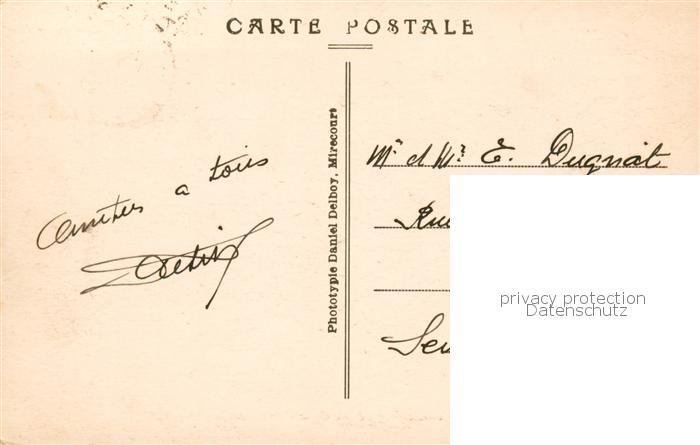 CARTE POSTALE
Amitiés a tous
Phototypie Daniel Delboy, Mirecourt
Mr et Me E. Dugnat
Rue
privacy protection
Datenschutz